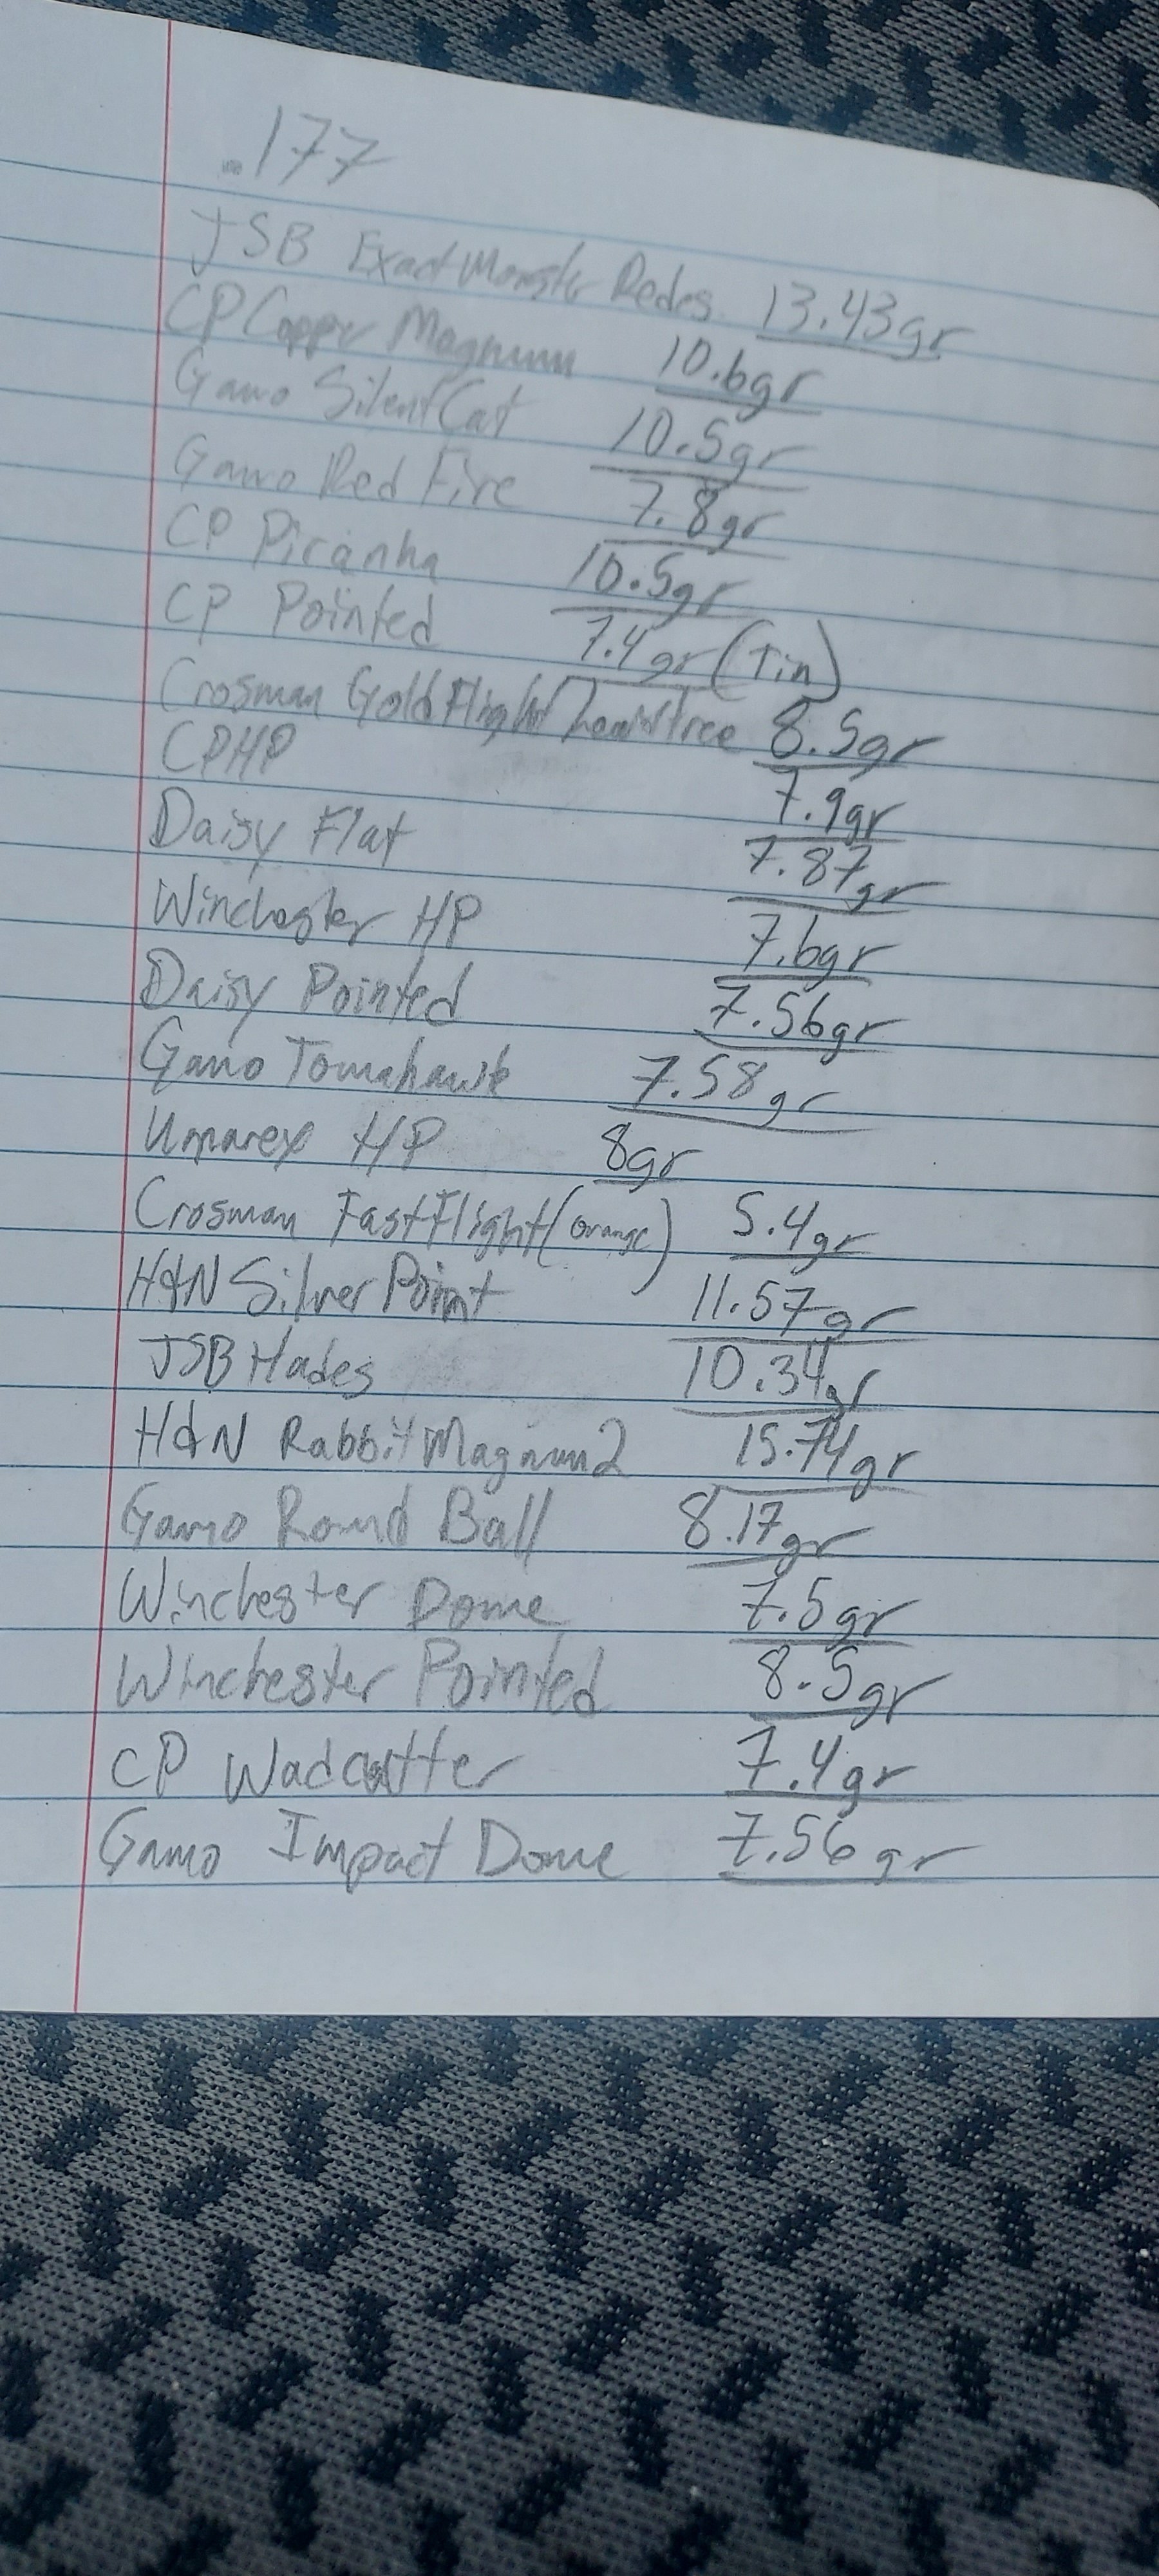 .177
JSB Exact Monster Redes. 13.43gr
CP Copper Magnum 10.6gr
Gamo Silent Cat 10.5gr
Gamo Red Fire 7.8gr
CP Piranha 10.5gr
CP Pointed 7.4gr (Tin)
Crosman Gold Flight/ Lead Free 8.5gr
CPHP 7.9gr
Daisy Flat 7.87gr
Winchester HP 7.6gr
Daisy Pointed 7.56gr
Gamo Tomahawk 7.58gr
Umarex HP 8gr
Crosman Fast Flight (orange) 5.4gr
H&N Silver Point 11.57gr
JSB Hades 10.34gr
H&N Rabbit Magnum 2 15.74gr
Gamo Round Ball 8.17gr
Winchester Dome 7.5gr
Winchester Pointed 8.5gr
CP Wadcutter 7.4gr
Gamo Impact Dome 7.56gr